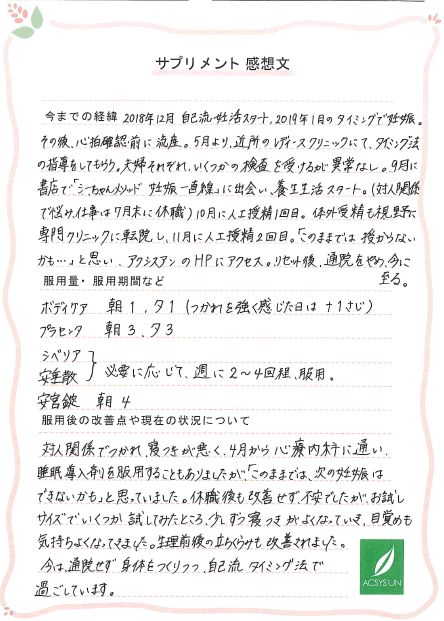 サプリメント 感想文
今までの経緯 2018年12月 自己流妊活スタート, 2019年1月のタイミングで妊娠。
その後、心拍確認前に流産。5月より、近所のレディースクリニックにて、タイミング法
の指導をしてもらう。夫婦それぞれ、いくつかの検査を受けるが異常なし。9月に
書店で「シーちゃんメソッド 妊娠一直線」に出会い、養生生活スタート。(対人関係
で悩み、仕事は7月末に休職) 10月に人工授精1回目。体外受精も視野に
専門クリニックに転院し、11月に人工授精2回目。「このままでは 授からない
かも…」と思い、アクシスアンのHPにアクセス。リセット後、通院をやめ、今に
至る。
服用量・服用期間など
ボディケア 朝1, 夕1 (つかれを強く感じた日は +1さじ)
プラセンタ 朝3、夕3
シベリア
安垂散 } 必要に応じて、週に2〜4回程、服用。
安宮錠 朝4
服用後の改善点や現在の状況について
対人関係でつかれ、寝つきが悪く、4月から心療内科に通い、
睡眠導入剤を服用することもありましたが、「このままでは、次の妊娠は
できないかも」と思っていました。休職後も改善せず、不安でしたが、お試し
サイズでいくつか試してみたところ、少しずつ寝つきがよくなっていき、目覚めも
気持ちよくなってきました。生理前後の立ちくらみも改善されました。
今は、通院せず 身体をつくりつつ、自己流 タイミング法で
過ごしています。
ACSYSUN